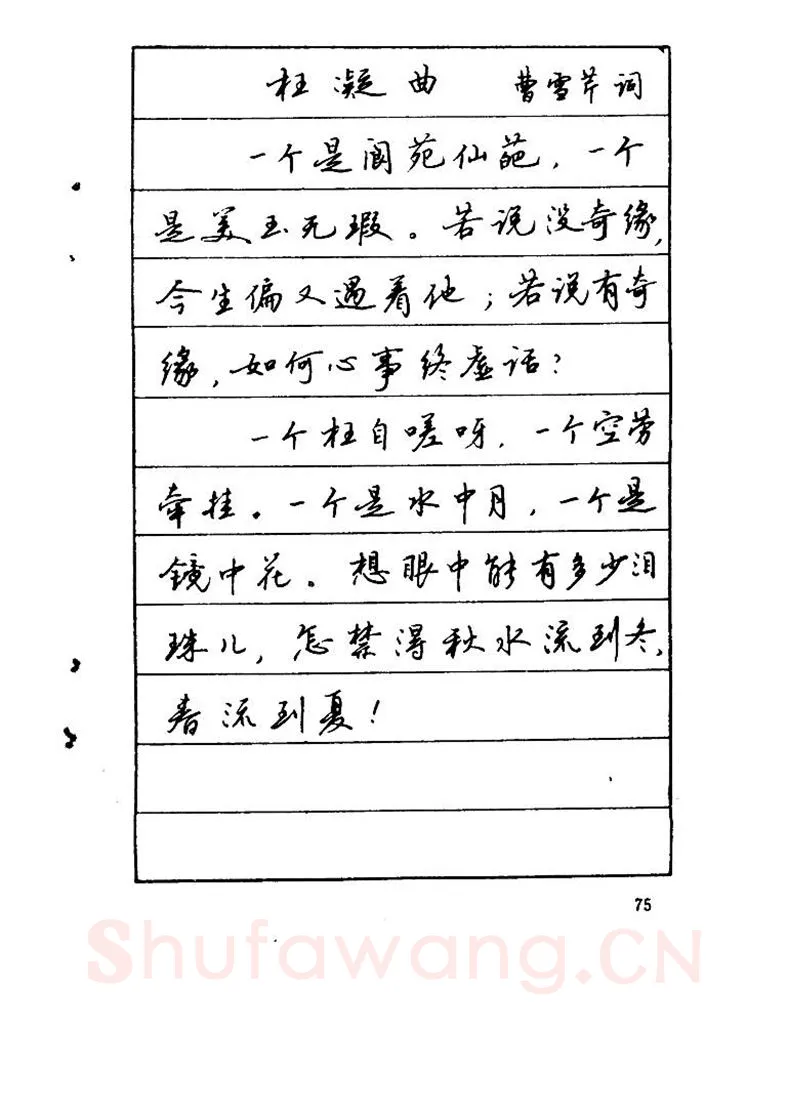 枉凝曲 曹雪芹词
一个是阆苑仙葩，一个
是美玉无瑕。若说没奇缘，
今生偏又遇着他；若说有奇
缘，如何心事终虚话？
一个枉自嗟呀，一个空劳
牵挂。一个是水中月，一个是
镜中花。想眼中能有多少泪
珠儿，怎禁得秋水流到冬，
春流到夏！
75
Shufawang.CN